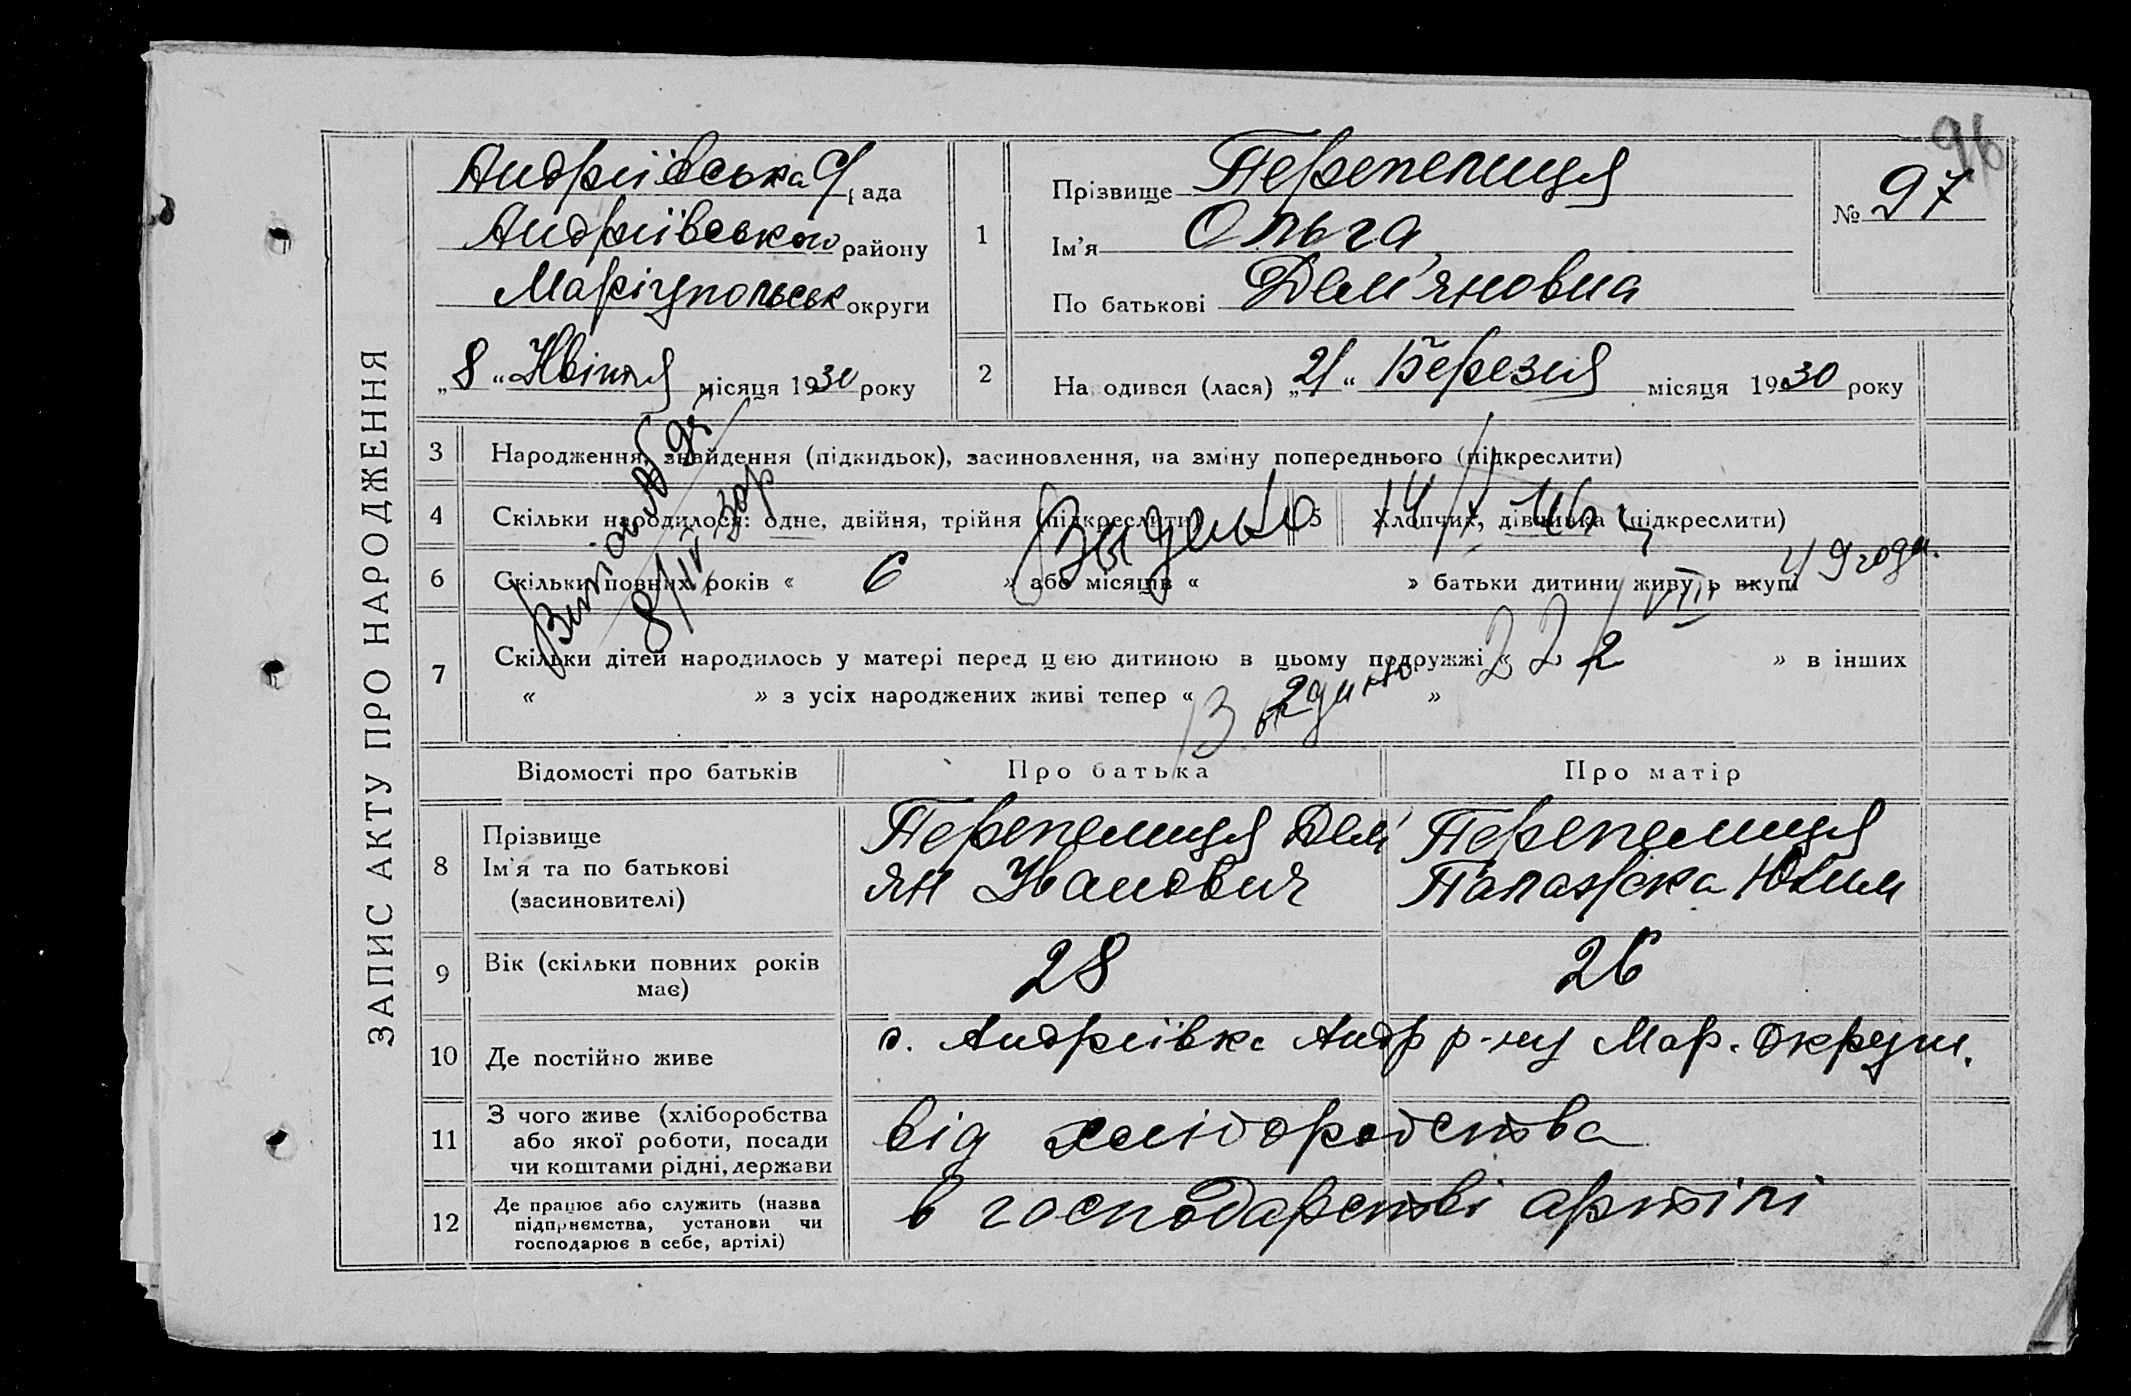 96
ЗАПИС АКТУ ПРО НАРОДЖЕННЯ
Андріївська рада
Андріївського району
Маріупольськ округи
„8“ Квітня місяця 1930 року
1
Прізвище Перепелиця
Ім’я Ольга
По батькові Дем’яновна
№ 97
2 На одився (лася) „21“ Березня місяця 1930 року
3 Народження, знайдення (підкидьок), засиновлення, на зміну попереднього (підкреслити)
4 Скільки народилося: одне, двійня, трійня (підкреслити) 5 Хлопчик, дівчинка (підкреслити)
6 Скільки повних років « 6 » або місяців « » батьки дитини живуть вкупі
7 Скільки дітей народилось у матері перед цією дитиною в цьому подружжі « 2 » в інших
« » з усіх народжених живі тепер « 2 »
8/IV 30р
49 года.
VIII
Відомості про батьків Про батька Про матір
8 Прізвище
Ім’я та по батькові
(засиновителі)
Перепелиця Дем’
ян Иванович
Перепелиця
Палажка Юхим
9 Вік (скільки повних років має) 28 26
10 Де постійно живе с. Андріївка Андр р-ну Мар. округи.
11 З чого живе (хліборобства
або якої роботи, посади
чи коштами рідні, держави
від хліборобства
12 Де працює або служить (назва
підприємства, установи чи
господарює в себе, артілі)
в господарстві артілі